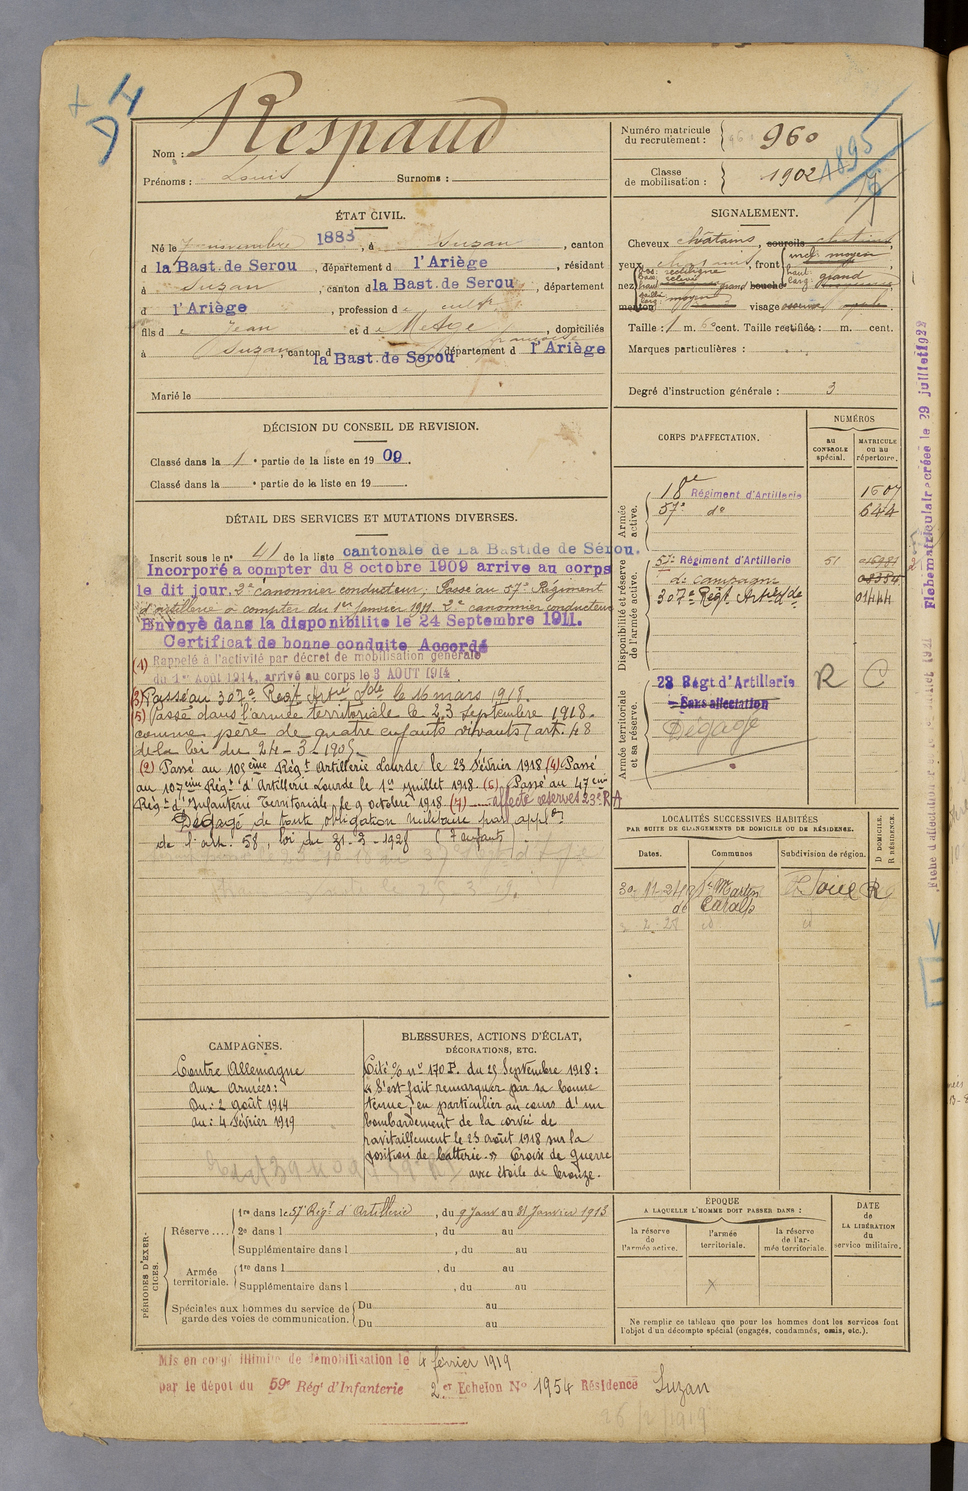 Nom : Respaud
Prénoms : Louis Surnoms :
Numéro matricule du recrutement : 960
Classe de mobilisation : 1902
1895
ÉTAT CIVIL.
Né le novembre 1883, à Suzan, canton
d la Bast. de Serou, département d l'Ariège, résidant
à Suzan, canton d la Bast. de Serou, département
d l'Ariège, profession d cult
fils d e Jean et d e, domiciliés
à Suzan, canton d la Bast. de Serou département d l'Ariège
Marié le
SIGNALEMENT.
Cheveux châtains, sourcils châtains
yeux, front incl: moyen
haut:
larg: grand
nez dos: rectiligne
base: relevé
haut grand bouche
saillie
larg: moyen
menton visage
Taille : 1 m. cent. Taille rectifiée : m. cent.
Marques particulières :
Degré d'instruction générale : 3
DÉCISION DU CONSEIL DE REVISION.
Classé dans la 1 e partie de la liste en 1909.
Classé dans la e partie de la liste en 19
CORPS D'AFFECTATION.
NUMÉROS
au CONTROLE spécial.
MATRICULE ou au répertoire.
Armée active.
18e Régiment d'Artillerie 1607
57e do 644
Disponibilité et réserve de l'armée active.
57e Régiment d'Artillerie 51
de campagne
307e Régt Artie de 01444
Armée territoriale et sa réserve.
23 Régt d'Artillerie R C
Sans affectation
Dégagé
DÉTAIL DES SERVICES ET MUTATIONS DIVERSES.
Inscrit sous le no 41 de la liste cantonale de La Bastide de Sérou.
Incorporé a compter du 8 octobre 1909 arrive au corps
le dit jour. 2e canonnier conducteur, Passé au 57e Régiment
d'artillerie à compter du 1er janvier 1911. 2e canonnier conducteur
Envoyé dans la disponibilite le 24 Septembre 1911.
Certificat de bonne conduite Accordé
(1) Rappelé à l'activité par décret de mobilisation générale
du 1er Août 1914, arrivé au corps le 3 AOUT 1914
(3) Passé au 307e Régt Artie le 16 mars 1918
(5) Passé dans l'armée territoriale le 23 septembre 1918.
comme père de quatre enfants vivants (art. 48
de la loi du 24-3-1905.
(2) Passé au 105ème Régt Artillerie Lourde le 23 Février 1918 (4) Passé
au 107ème Régt d'Artillerie Lourde le 1er juillet 1918 (6) Passé au 47ème
Régt d'Infanterie Territoriale le 9 octobre 1918 (7) affecté réserves 23e RA
Dégagé de toute obligation militaire par appon
de l'art. 58, loi du 31-3-1928 (7 enfants)
LOCALITÉS SUCCESSIVES HABITÉES
PAR SUITE DE CHANGEMENTS DE DOMICILE OU DE RÉSIDENCE.
Dates.
Communes
Subdivision de région.
D DOMICILE.
R RÉSIDENCE.
30-11-24 St Martin Foix R
de Caralp
2-28 id id
CAMPAGNES.
Contre Allemagne
Aux Armées :
Du : 2 août 1914
au : 4 Février 1919
BLESSURES, ACTIONS D'ÉCLAT,
DÉCORATIONS, ETC.
Cité no 170 P. du 25 Septembre 1918 :
« S'est fait remarquer par sa bonne
tenue, en particulier au cours d'un
bombardement de la corvée de
ravitaillement le 23 août 1918 sur la
position de batterie. » Croix de guerre
avec étoile de bronze.
PÉRIODES D'EXERCICES.
Réserve.... 1re dans le 57e Régt d'Artillerie, du 9 Janv au 31 Janvier 1913
2e dans l , du au
Supplémentaire dans l , du au
Armée territoriale. 1re dans l , du au
Supplémentaire dans l , du au
Spéciales aux hommes du service de garde des voies de communication. Du au
Du au
ÉPOQUE
A LAQUELLE L'HOMME DOIT PASSER DANS :
la réserve de l'armée active.
l'armée territoriale.
la réserve de l'armée territoriale.
DATE de LA LIBÉRATION du service militaire.
X
Ne remplir ce tableau que pour les hommes dont les services font
l'objet d'un décompte spécial (engagés, condamnés, omis, etc.).
Mis en congé illimité de démobilisation le 4 février 1919
par le dépot du 59e Régt d'Infanterie 2er Echelon No 1954 Résidence Suzan
Fiche matriculaire créée le 29 juillet 1928